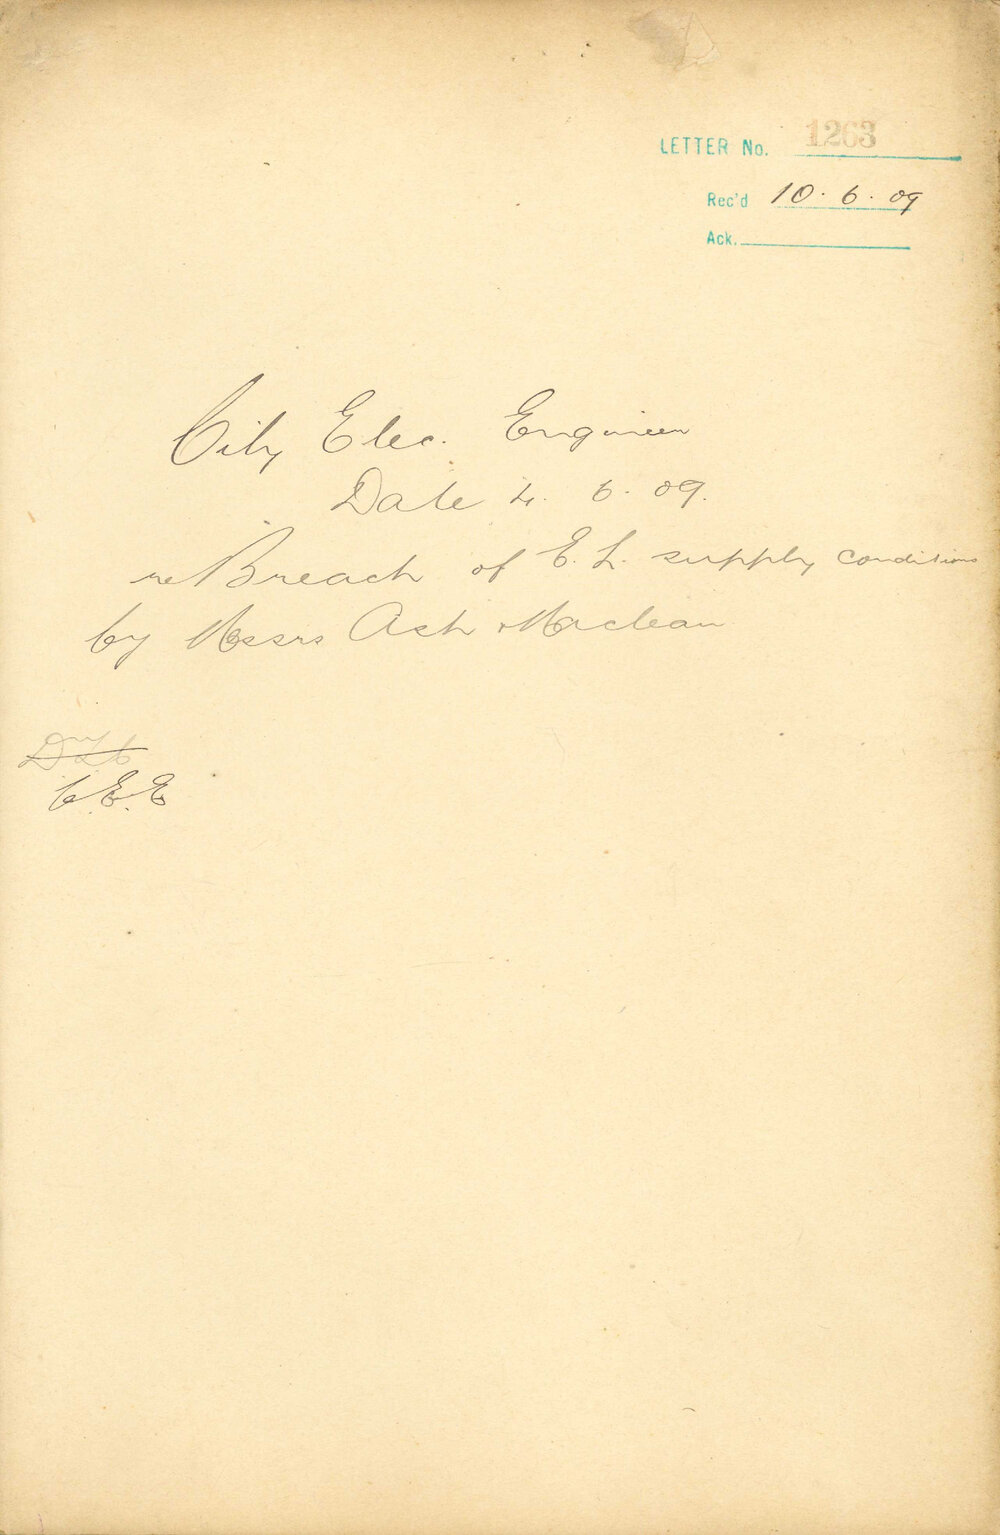 LETTER No. 1263
Rec'd 10. 6. 09
Ack.
City Elec. Engineer
Date 4. 6. 09.
re Breach of E. L. supply conditions
by Messrs Ash & Maclean
C.E.E